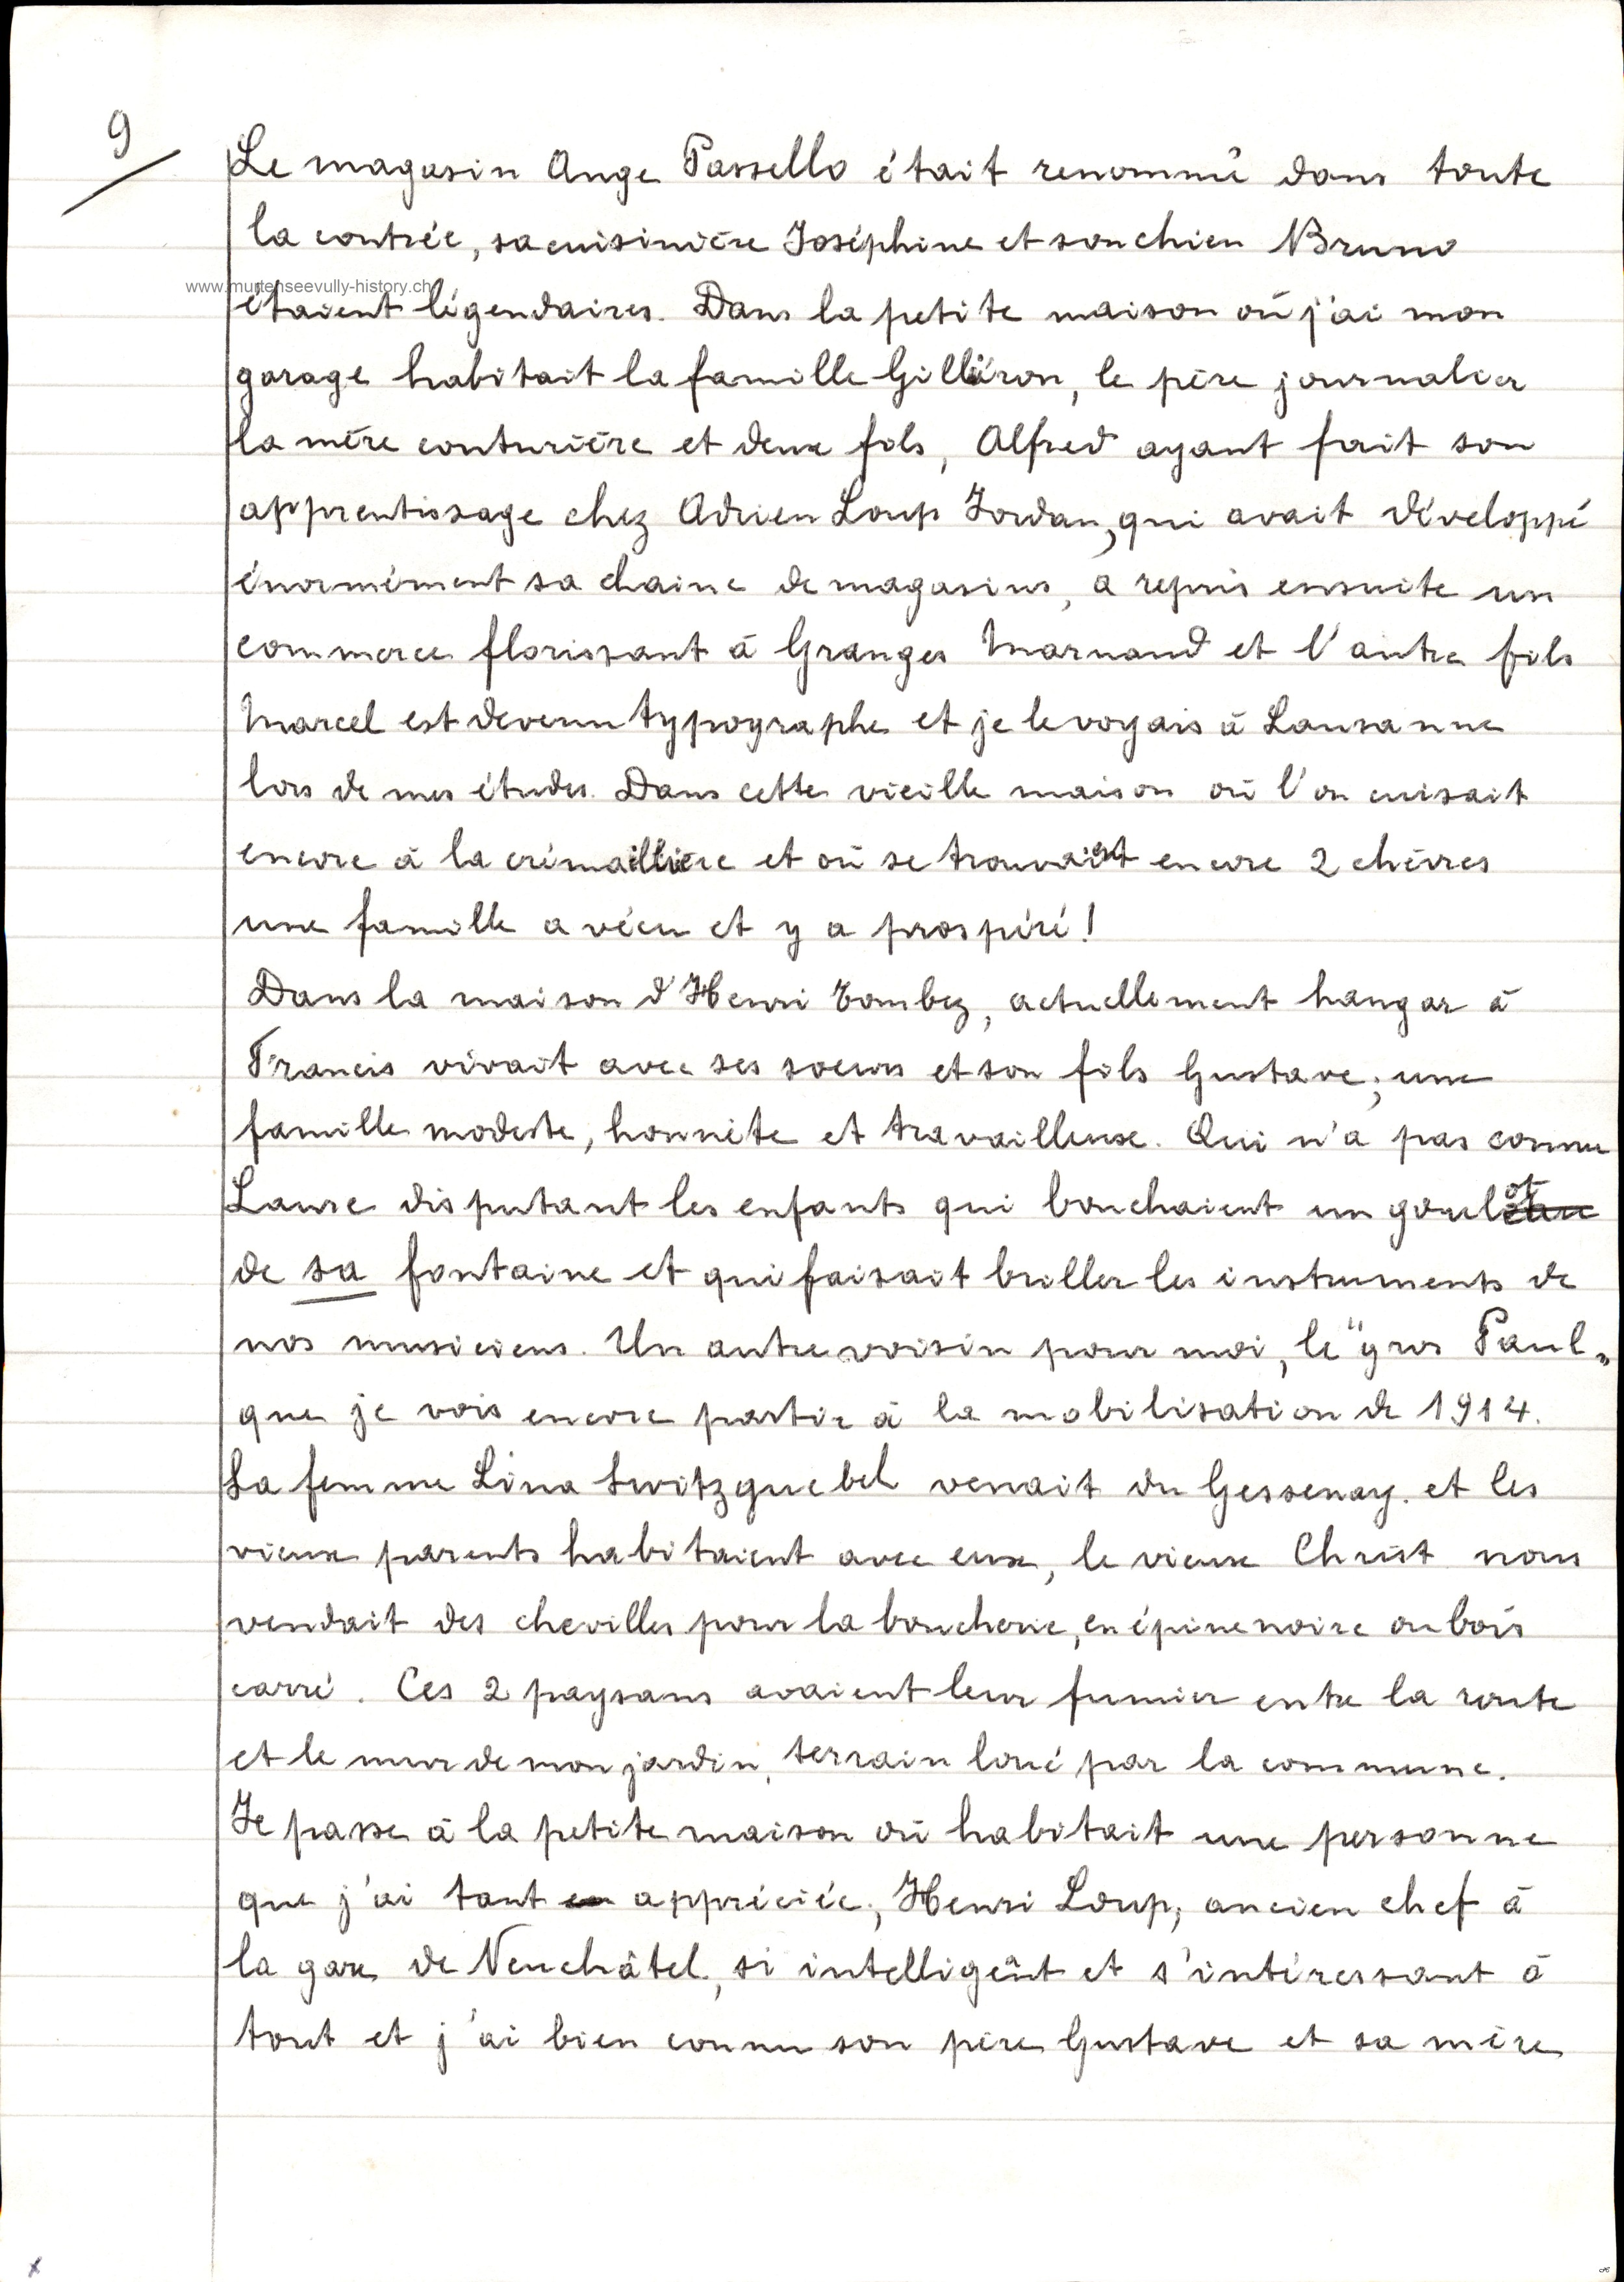 9
Le magasin Ange Passello était renommé dans toute
la contrée, sa cuisinière Joséphine et son chien Bruno
www.murtenseevully-history.ch
étaient légendaires. Dans la petite maison où j'ai mon
garage habitait la famille Gilliéron, le père journalier
la mère couturière et deux fils, Alfred ayant fait son
apprentissage chez Adrien Loup Jordan, qui avait développé
énormément sa chaine de magasins, a repris ensuite un
commerce florissant à Granges Marnand et l'autre fils
Marcel est devenu typographe et je le voyais à Lausanne
lors de mes études. Dans cette vieille maison où l'on cuisait
encore à la crémaillière et où se trouvaient encore 2 chèvres
une famille a vécu et y a prospéré!
Dans la maison d'Henri Tombez, actuellement hangar à
Francis vivait avec ses soeurs et son fils Gustave; une
famille modeste, honnête et travailleuse. Qui n'a pas connu
Laure disputant les enfants qui bouchaient un goulot
de sa fontaine et qui faisait briller les instruments de
nos musiciens. Un autre voisin pour moi, le "gros Paul"
que je vois encore partir à la mobilisation de 1914.
Sa femme Lina Switzguebel venait du Gessenay. et les
vieux parents habitaient avec eux, le vieux Christ nous
vendait des chevilles pour la boucherie, en épine noire ou bois
carré. Ces 2 paysans avaient leur fumier entre la route
et le mur de mon jardin, terrain loué par la commune.
Je passe à la petite maison où habitait une personne
que j'ai tant appréciée, Henri Loup, ancien chef à
la gare de Neuchâtel, si intelligent et s'intéressant à
tout et j'ai bien connu son père Gustave et sa mère